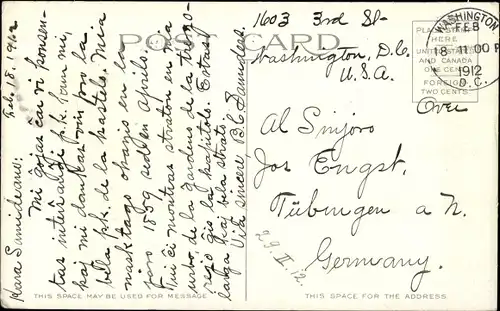 1603 3rd St-
Washington, D.C.
U.S.A.
POST CARD
WASHINGTON
FEB
18-11 00 P
1912
D.C.
PLACE STAMP
HERE
UNITED STATES
AND CANADA
ONE CENT
FOREIGN
TWO CENTS
Over
Al Sinjoro
Jos Engst,
Tübingen a N.
Germany.
29.II.12.
Feb. 18, 1912
Kara Samideano:
Mi ĝojas ĉar vi konsen-
tas interŝanĝi p.k. kun mi,
kaj mi dankas vin pro la
bela p.k. de la kastelo. Mia
nasktago okazis en la
jaro 1859 sed en Aprilo.
Tiu ĉi montras straton en la
urbo de la ĝardeno de la
reĝo ĝis la kapitolo. Estas
larĝa kaj bela strato.
Via sincere B.C. Saunders.
THIS SPACE MAY BE USED FOR MESSAGE
THIS SPACE FOR THE ADDRESS.